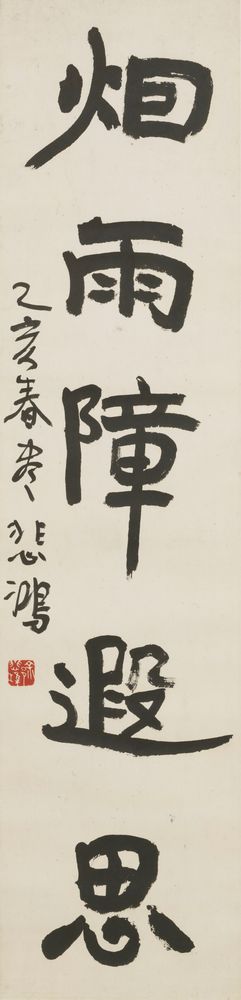 烟雨障遐思
乙亥春尽 悲鸿